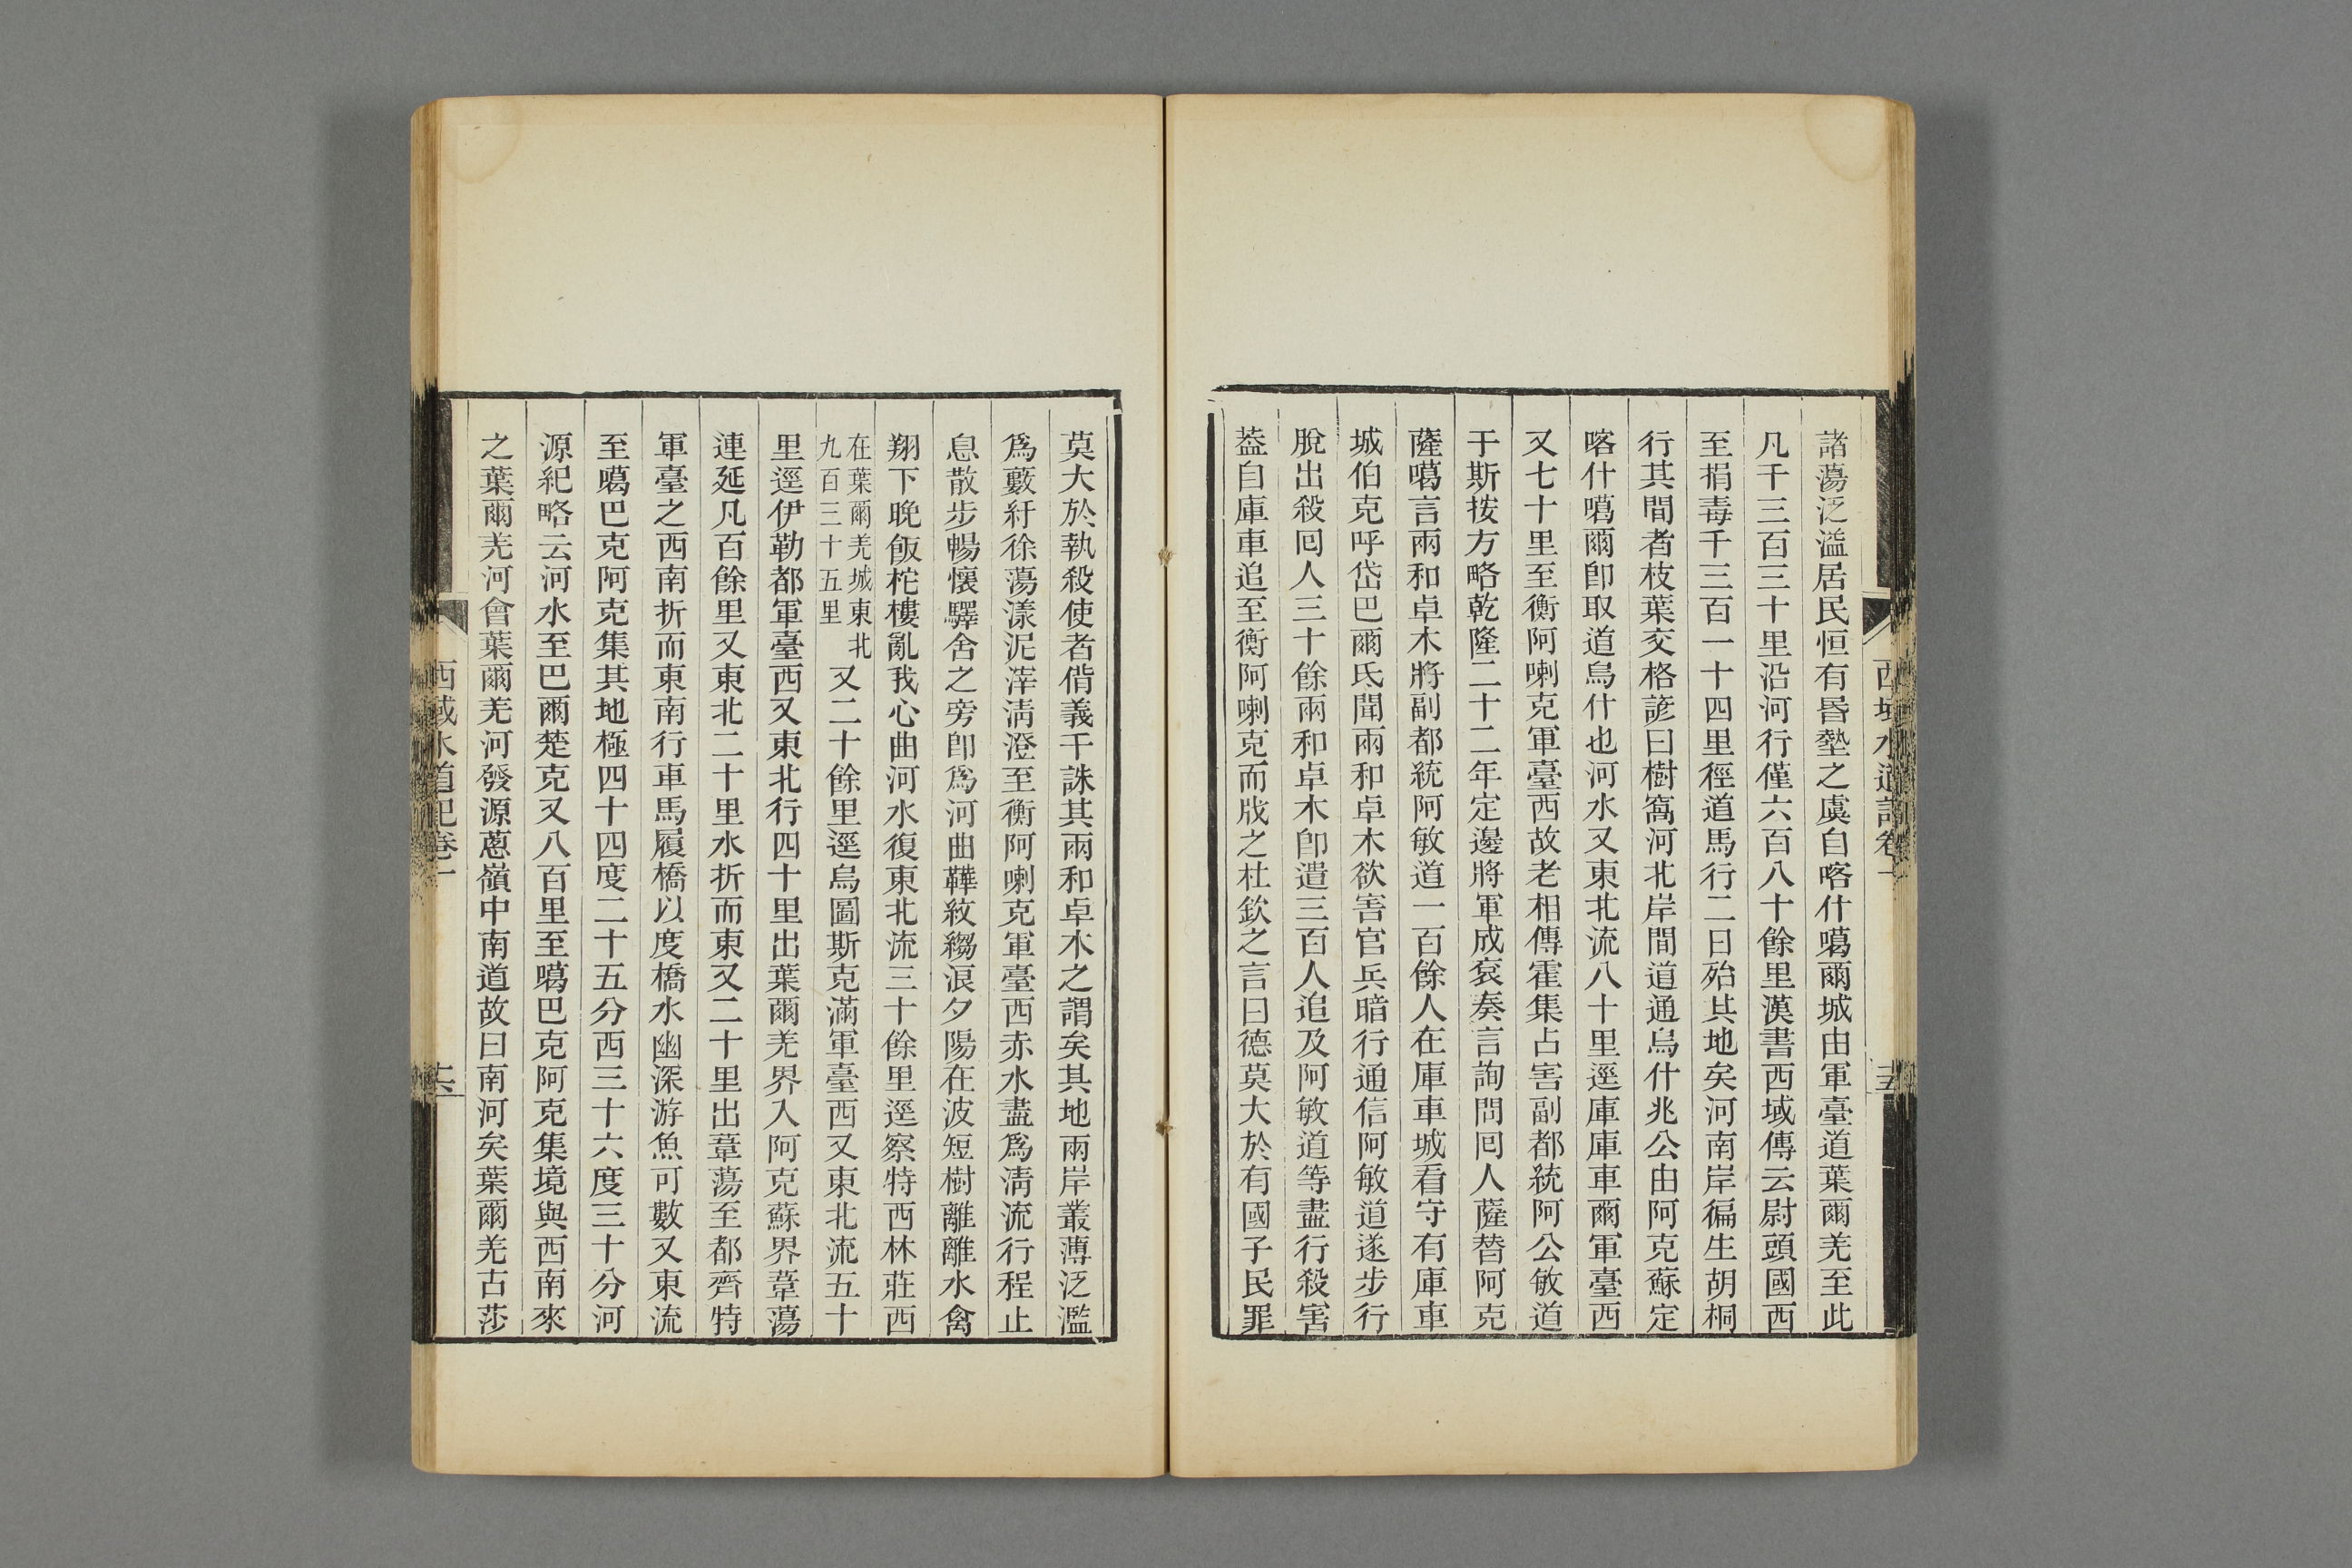 西域水道記卷一
諸蕩泛溢居民恒有昬墊之虞自喀什噶爾城由軍臺道葉爾羌至此
凡千三百三十里沿河行僅六百八十餘里漢書西域傳云尉頭國西
至捐毒千三百一十四里徑道馬行二日殆其地矣河南岸徧生胡桐
行其間者枝葉交格諺曰樹窩河北岸間道通烏什兆公由阿克蘇定
喀什噶爾卽取道烏什也河水又東北流八十里逕庫庫車爾軍臺西
又七十里至衡阿喇克軍臺西故老相傳霍集占害副都統阿公敏道
于斯按方略乾隆二十二年定邊將軍成袞奏言詢問回人薩替阿克
薩噶言兩和卓木將副都統阿敏道一百餘人在庫車城看守有庫車
城伯克呼岱巴爾氐聞兩和卓木欲害官兵暗行通信阿敏道遂步行
脫出殺回人三十餘兩和卓木卽遣三百人追及阿敏道等盡行殺害
葢自庫車追至衡阿喇克而戕之杜欽之言曰德莫大於有國子民罪
十五
莫大於執殺使者偝義干誅其兩和卓木之謂矣其地兩岸叢薄泛濫
爲藪紆徐蕩漾泥滓淸澄至衡阿喇克軍臺西赤水盡爲淸流行程止
息散步暢懷驛舍之旁卽爲河曲鞾紋縐浪夕陽在波短樹離離水禽
翔下晚飯柁樓亂我心曲河水復東北流三十餘里逕察特西林莊西
在葉爾羌城東北
九百三十五里
又二十餘里逕烏圖斯克滿軍臺西又東北流五十
里逕伊勒都軍臺西又東北行四十里出葉爾羌界入阿克蘇界葦蕩
連延凡百餘里又東北二十里水折而東又二十里出葦蕩至都齊特
軍臺之西南折而東南行車馬履橋以度橋水幽深游魚可數又東流
至噶巴克阿克集其地極四十四度二十五分西三十六度三十分河
源紀略云河水至巴爾楚克又八百里至噶巴克阿克集境與西南來
之葉爾羌河會葉爾羌河發源蔥嶺中南道故曰南河矣葉爾羌古莎
西域水道記卷一
十六